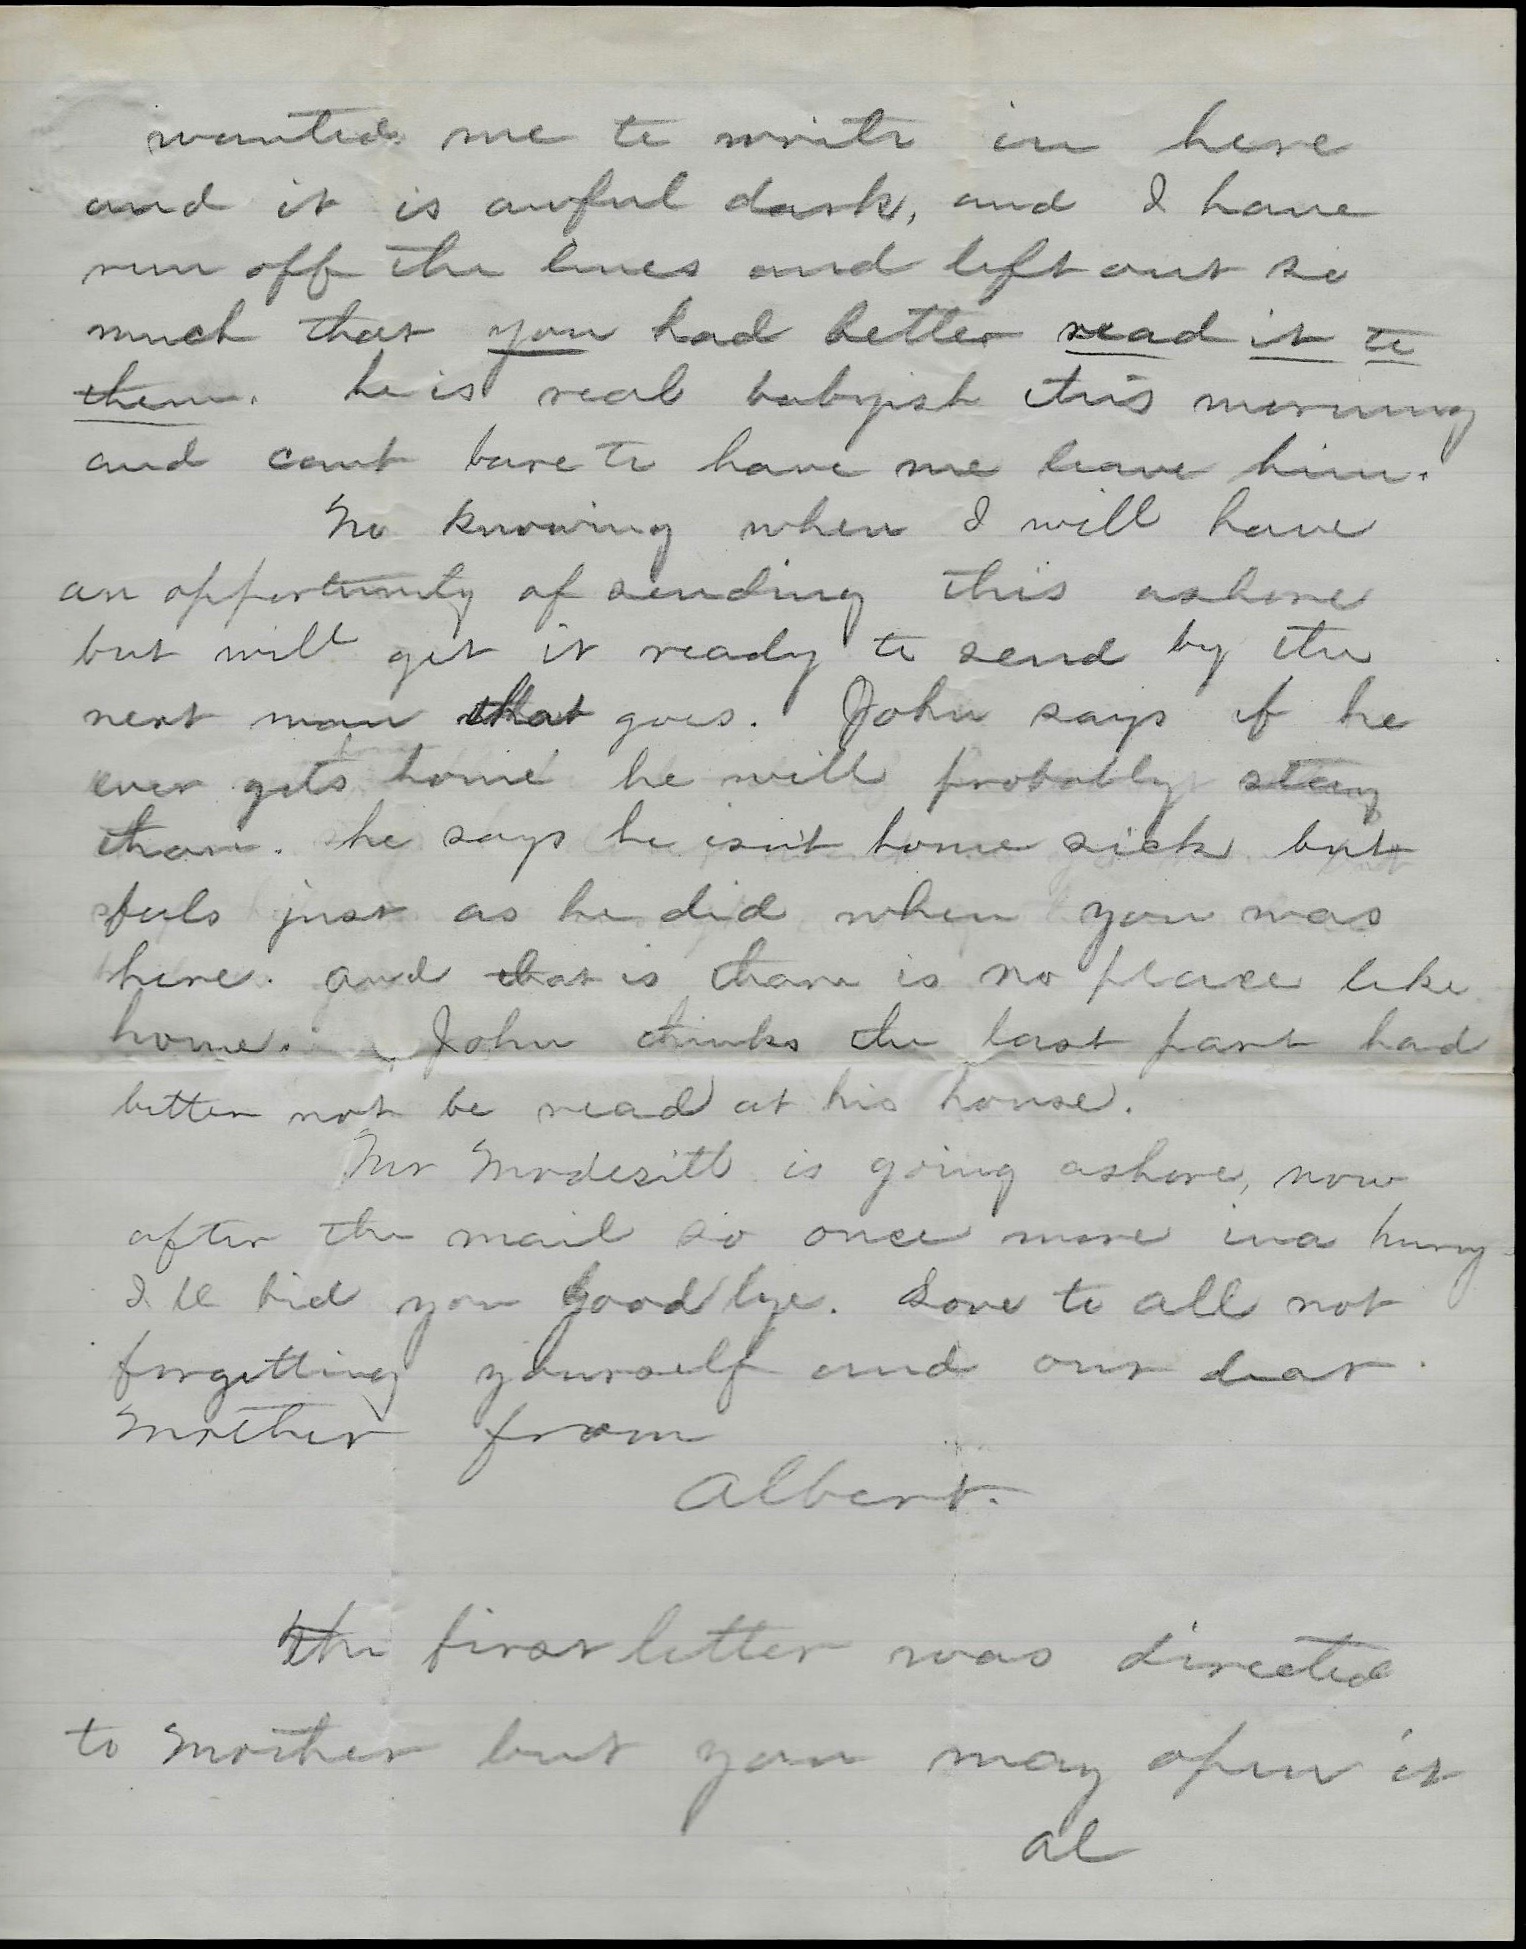 wanted me to write in here
and it is awful dark, and I have
run off the lines and left out so
much that you had better read it to
them. he is real babyish this morning
and cant bare to have me leave him.
No knowing when I will have
an opportunity of sending this ashore
but will get it ready to send by the
next man that goes. John says if he
ever gets home he will probably stay
thare. he says he isn't home sick but
feels just as he did when you was
here. and that is thare is no place like
home. John thinks the last part had
better not be read at his house.
Mr Modesitt is going ashore, now
after the mail so once more in a hurry
I ll bid you good bye. Love to all not
forgetting yourself and our dear
Mother from
Albert.
The first letter was directed
to Mother but you may open it
Al